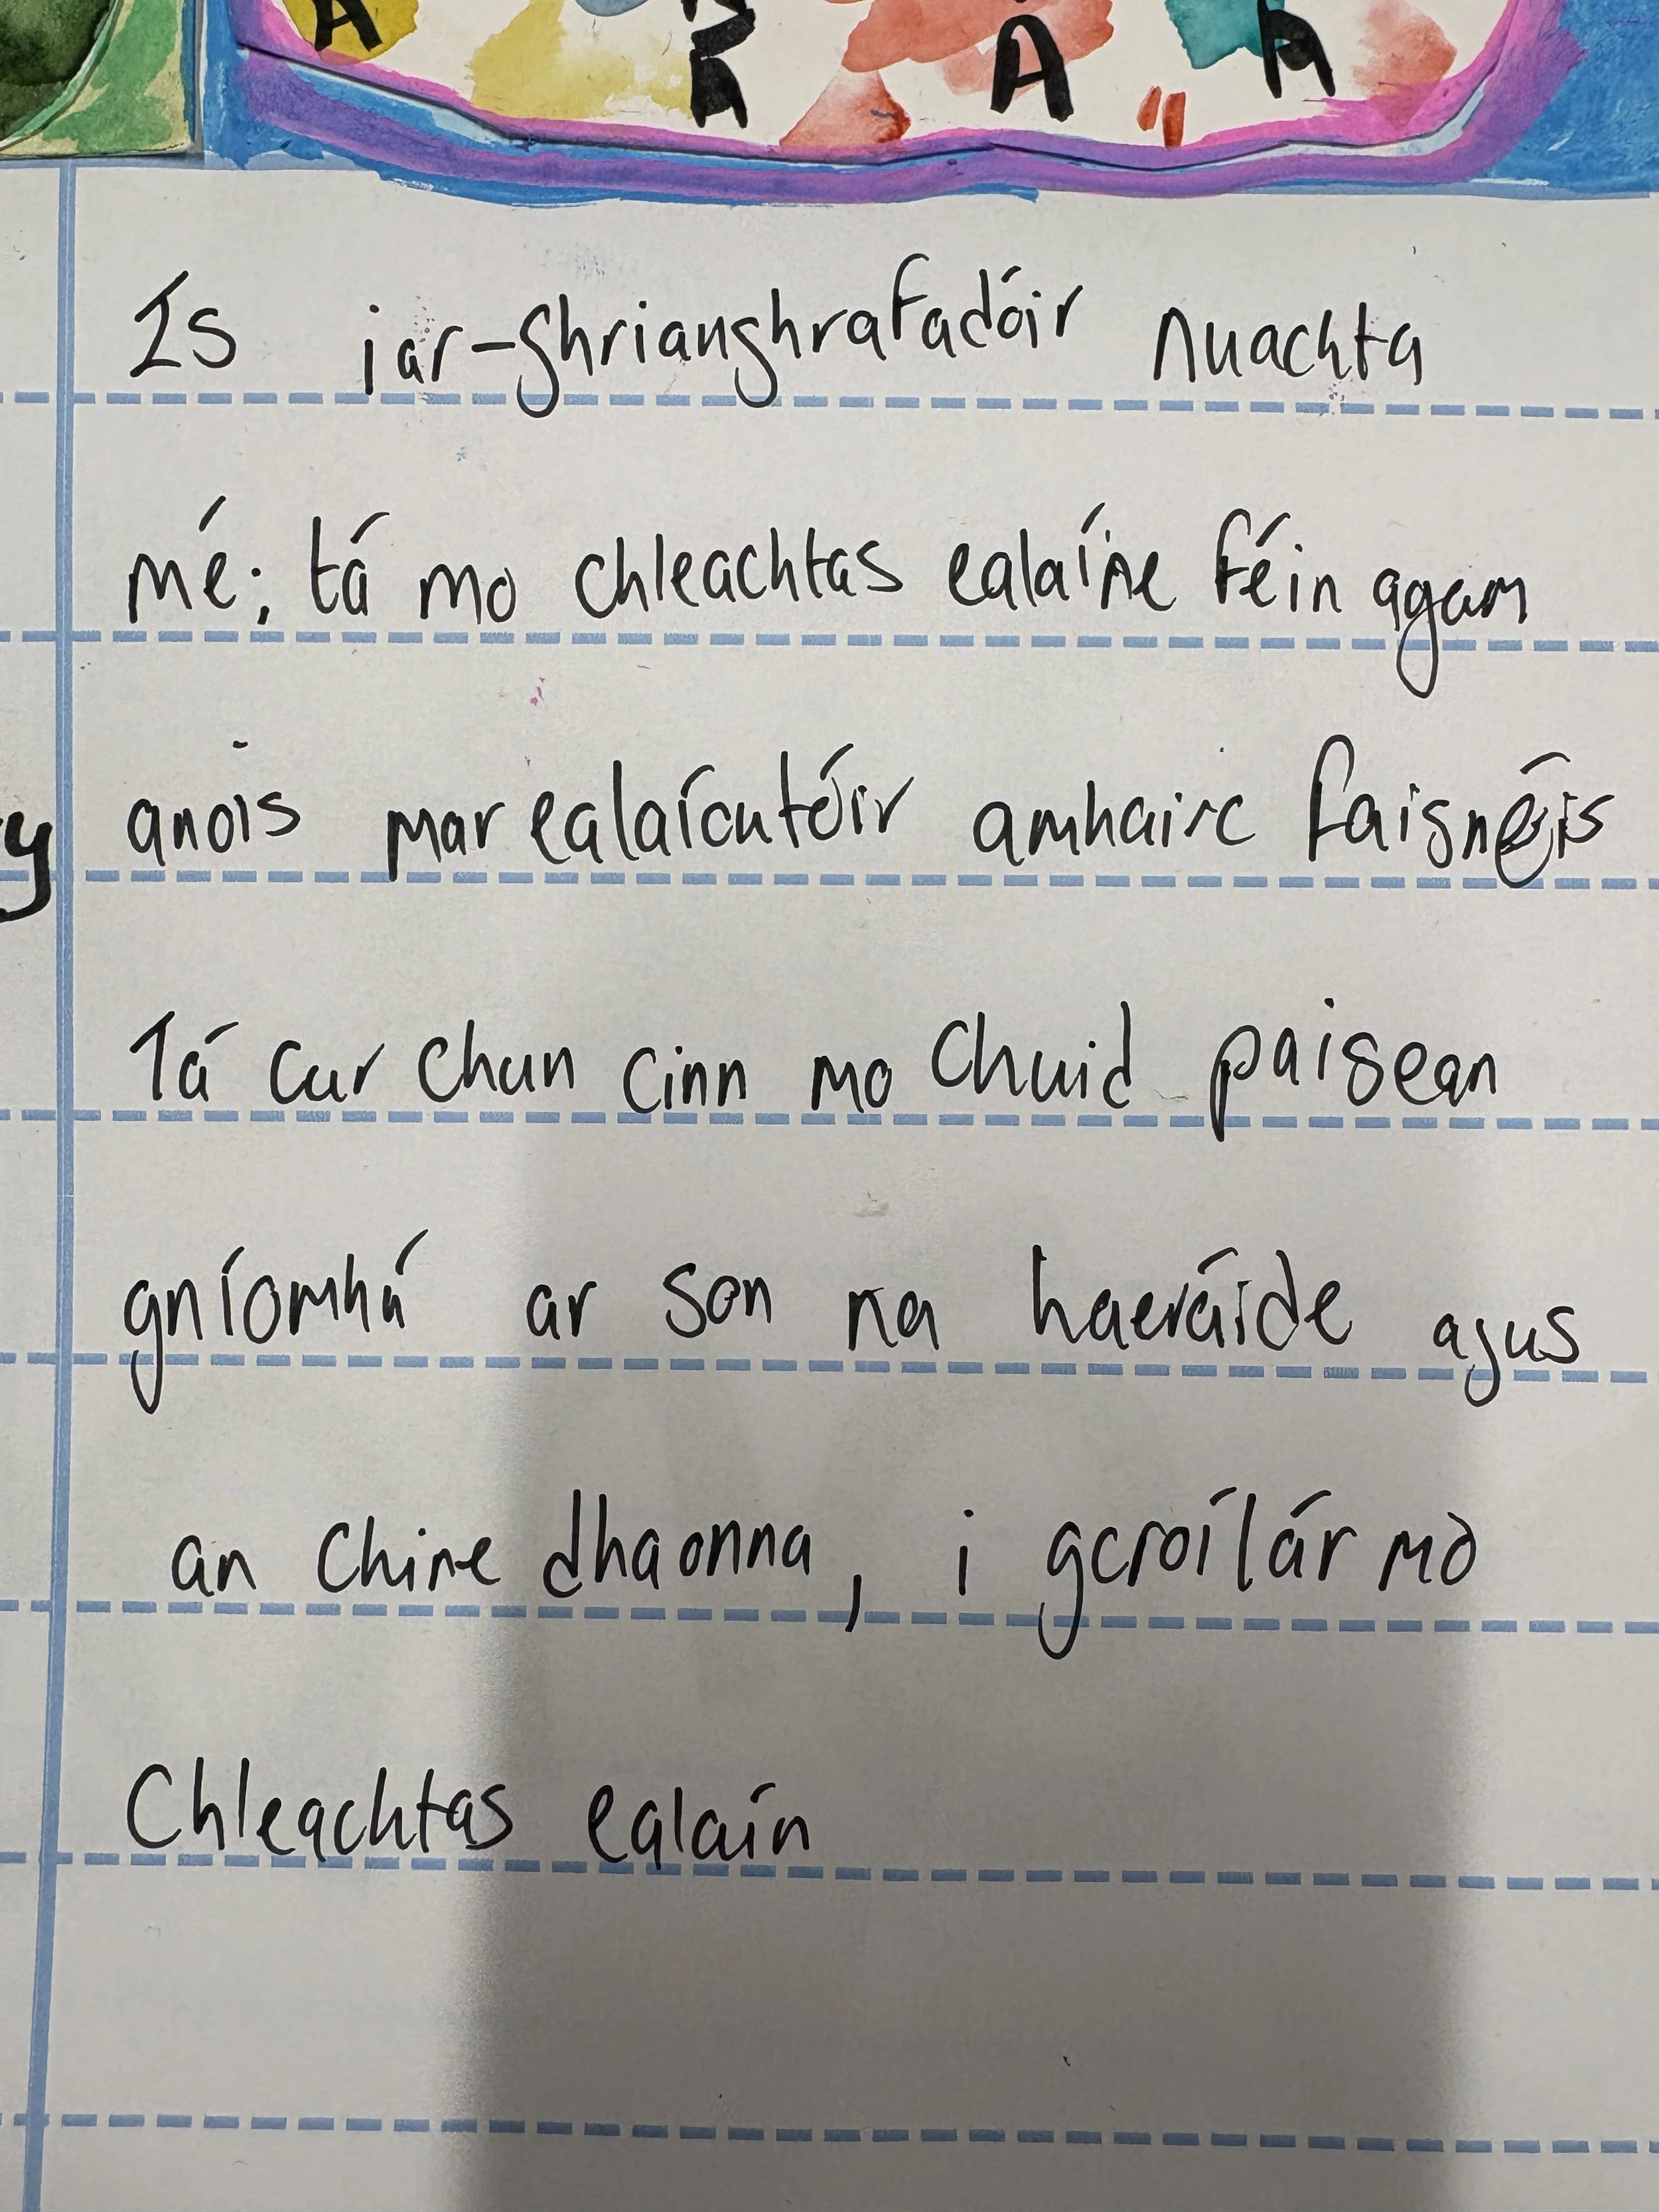 Is iar-ghrianghrafadóir nuachta
mé; tá mo chleachtas ealaíne féin agam
anois mar ealaíontóir amhairc faisnéis
Tá cur chun cinn mo chuid paisean
gníomhú ar son na haeráide agus
an chine dhaonna, i gcroílár mo
Chleachtas ealaín